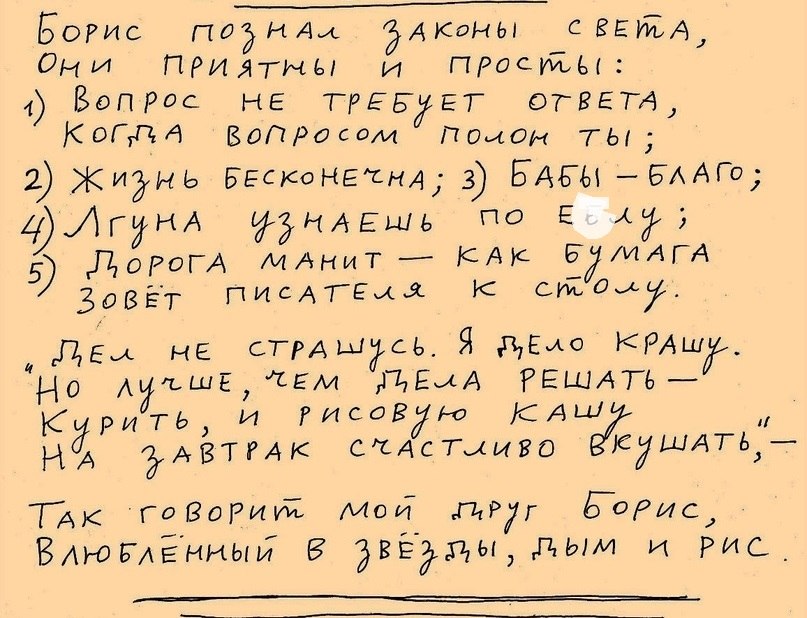 Борис познал законы света,
Они приятны и просты:
1) Вопрос не требует ответа,
Когда вопросом полон ты;
2) Жизнь бесконечна; 3) Бабы – благо;
4) Лгуна узнаешь по еблу;
5) Дорога манит – как бумага
Зовёт писателя к столу.
"Дел не страшусь. Я дело крашу.
Но лучше, чем дела решать –
Курить, и рисовую кашу
На завтрак счастливо вкушать," –
Так говорит мой друг Борис,
Влюблённый в звёзды, дым и рис.